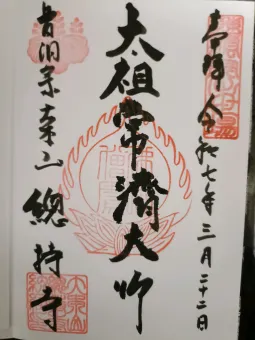 奉拝 令和七年三月二十二日
太祖常濟大師
曹洞宗大本山總持寺